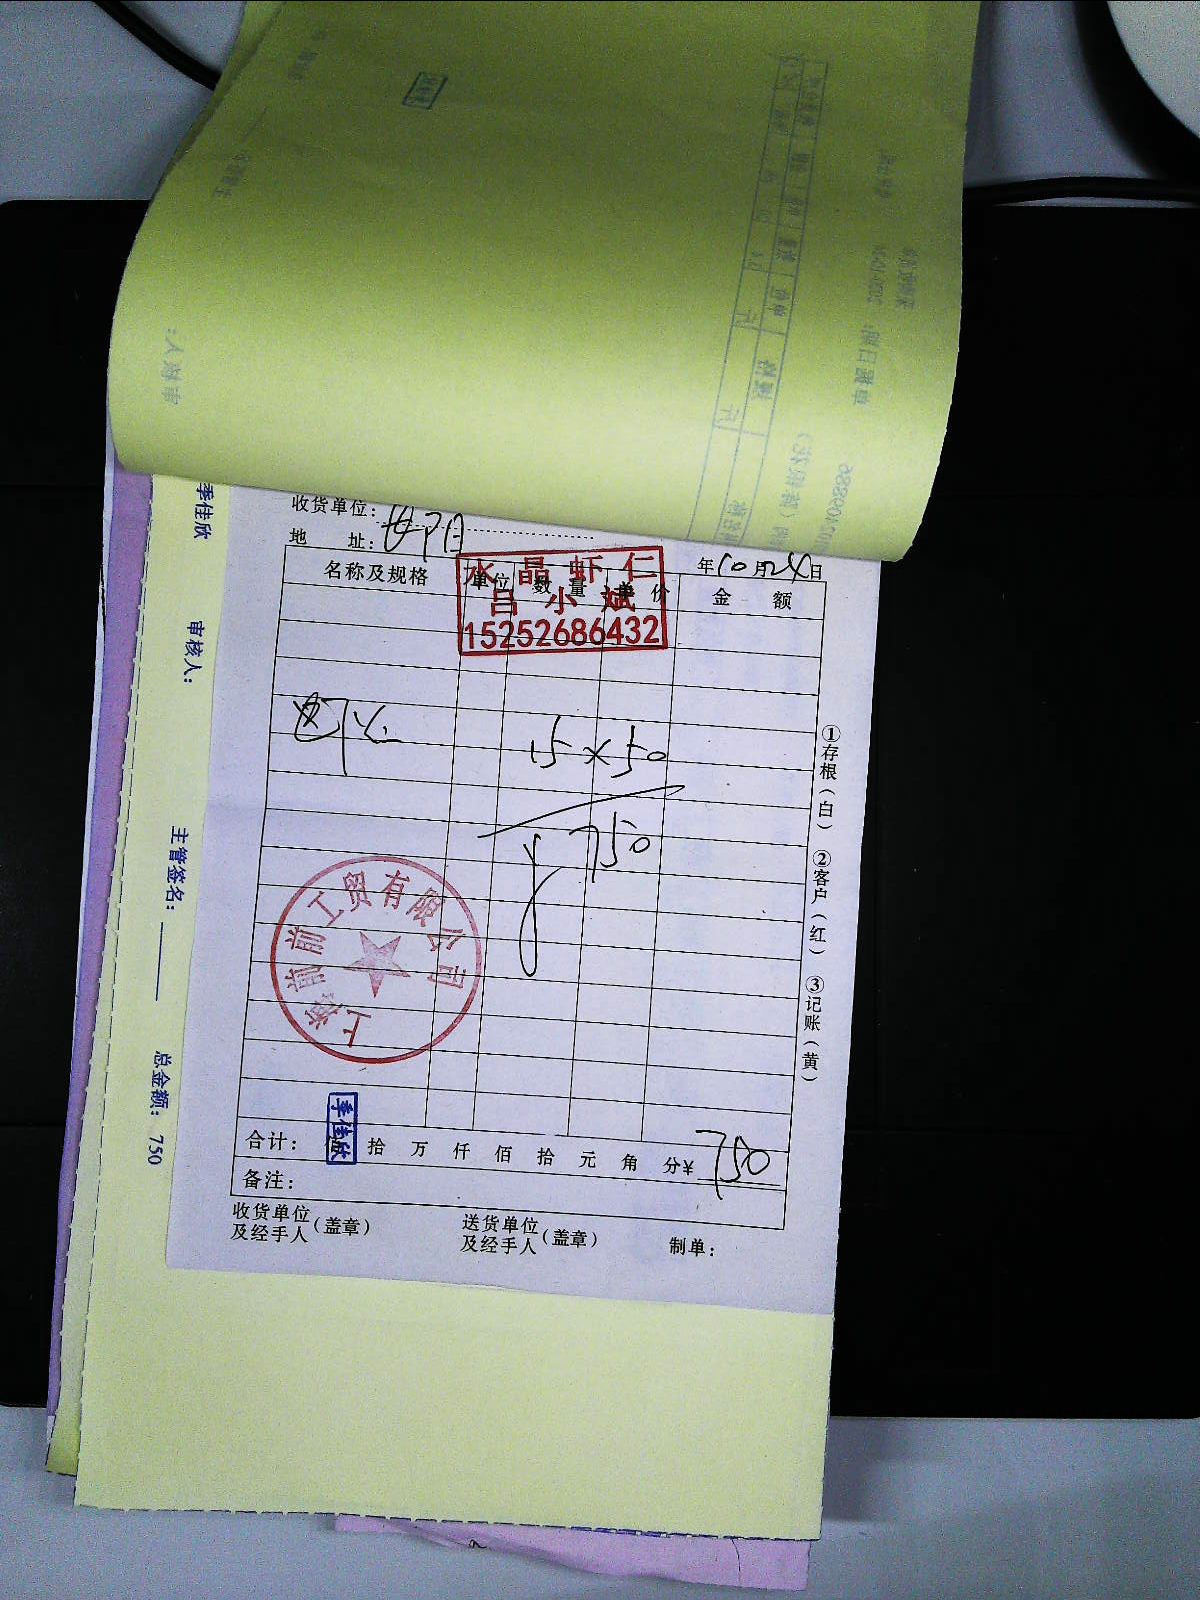 收货单位：
地 址：
年10月24日
水晶虾仁
吕小斌
15252686432
名称及规格 单位 数量 单价 金额
15×50
750
上海前前工贸有限公司
季佳欣
合计： 拾 万 仟 佰 拾 元 角 分¥ 750
备注：
收货单位及经手人（盖章）
送货单位及经手人（盖章）
制单：
①存根（白） ②客户（红） ③记账（黄）
季佳欣
审核人：
主管签名：
总金额：750